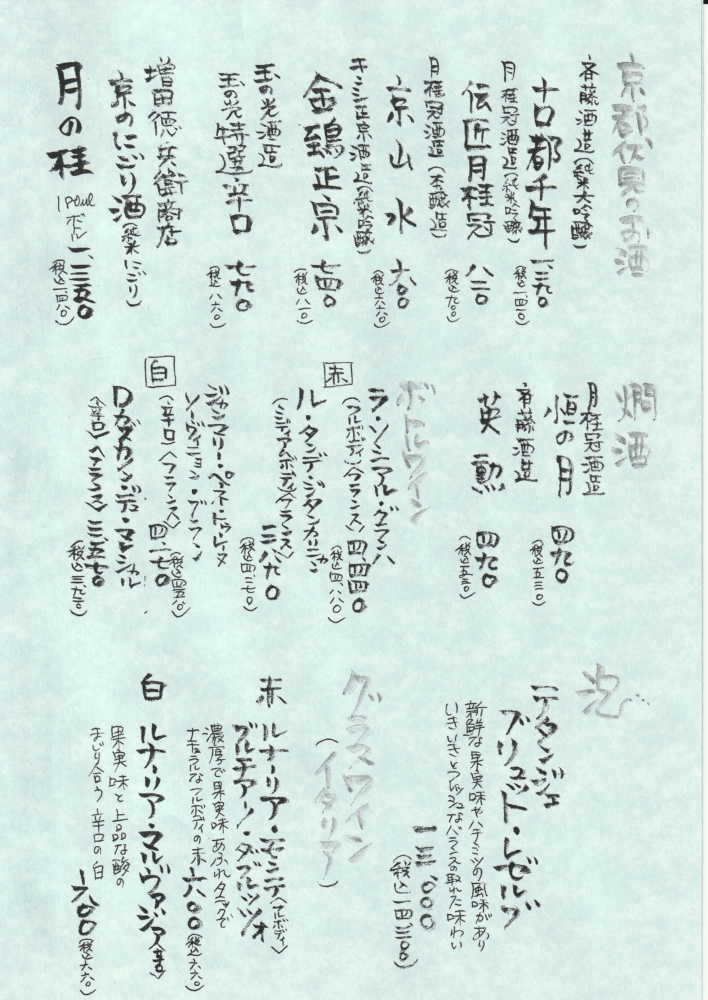 京都伏見のお酒
斉藤酒造(純米大吟醸)
古都千年 一、二九〇
(税込一四一〇)
月桂冠酒造(純米吟醸)
伝匠月桂冠 八二〇
(税込九〇〇)
月桂冠酒造(本醸造)
京山水 六〇〇
(税込六六〇)
キンシ正宗酒造(純米吟醸)
金鵄正宗 七四〇
(税込八一〇)
玉の光酒造
玉の光特選・辛口 七九〇
(税込八六〇)
増田德兵衛商店
京のにごり酒(純米にごり)
月の桂
ボトル 一、三五〇
(税込一四八〇)
燗酒
月桂冠酒造
恒の月 四九〇
(税込五三〇)
斉藤酒造
英勲 四九〇
(税込五三〇)
ボトルワイン
赤
ラ・ソシアル・グランバ
(フルボディ)〈フランス〉 四四四〇
(税込四、八八〇)
ル・タンデ・ジタン・カリニャン
(ミディアムボディ)〈フランス〉
三、八九〇
(税込四、二七〇)
白
ジャンマリー・ペネ・ドゥレイヌ
ソーヴィニョン・ブラン
(辛口)〈フランス〉 四、一七〇
(税込四五八〇)
ロガスカンディ・マレシャル
(辛口)〈フランス〉 三、五七〇
(税込三、九二〇)
泡
テタンジェ
ブリュット・レゼルブ
新鮮な果実味やハチミツの風味があり
いきいきとフレッシュなバランスの取れた味わい
一三、〇〇〇
(税込一四、三〇〇)
グラスワイン
(イタリア)
赤 ルナーリア・モンテ
プルチアーノ・ダブルッツォ
(フルボディ)
濃厚で果実味あふれタラックで
ナチュラルなフルボディの赤 六〇〇
(税込六六〇)
白 ルナーリア・マルヴァジア(辛口)
果実味と上品な酸の
まじり合う辛口の白
六〇〇(税込六六〇)